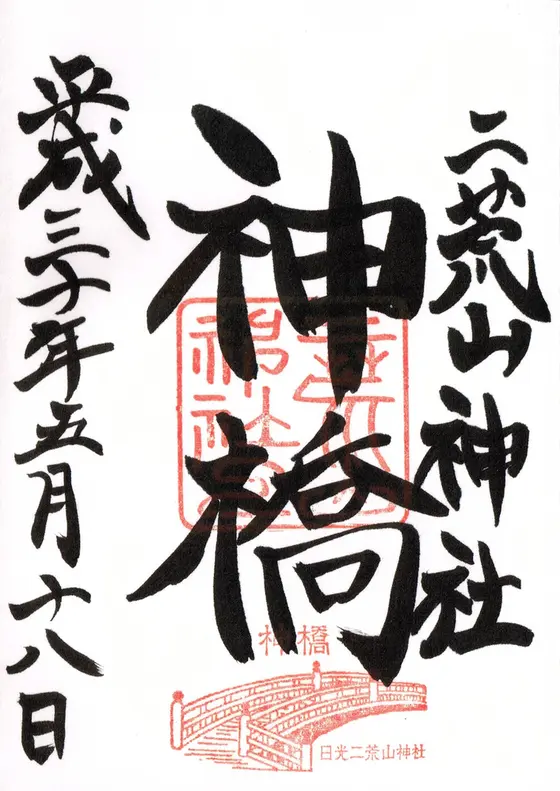 二荒山神社
神橋
平成三十年五月十八日
神橋
日光二荒山神社